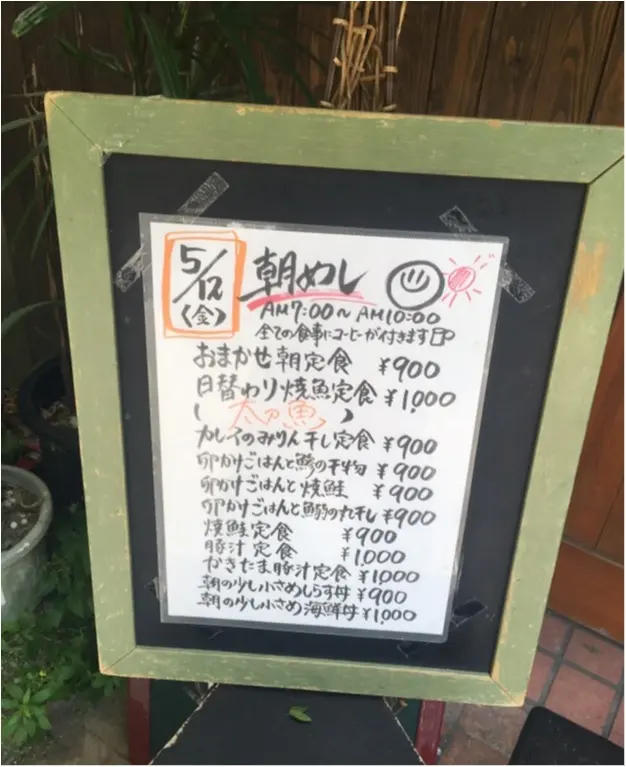 5/12
(金)
朝めし
AM7:00〜AM10:00
全ての食事にコーヒーが付きます
おまかせ朝定食 ¥900
日替わり焼魚定食 ¥1,000
(太刀魚)
カレイのみりん干し定食 ¥900
卵かけごはんと鯵の干物 ¥900
卵かけごはんと焼鮭 ¥900
卵かけごはんと鰯の丸干し ¥900
焼鮭定食 ¥900
豚汁定食 ¥1,000
かきたま豚汁定食 ¥1,000
朝の少し小さめしらす丼 ¥900
朝の少し小さめ海鮮丼 ¥1,000